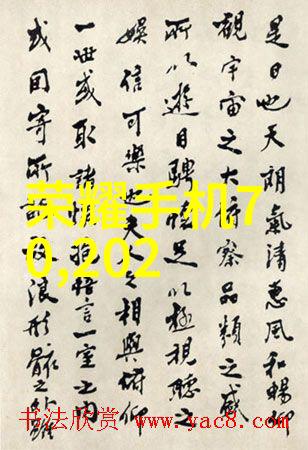 是日也天朗氣清惠風和暢仰
觀宇宙之大俯察品類之盛
所以遊目騁懷足以極視聽之
娛信可樂也夫人之相與俯仰
一世或取諸懷抱悟言一室之內
或因寄所託放浪形骸之外雖
荣耀手机7
0,202
书法欣赏 www.yac8.com